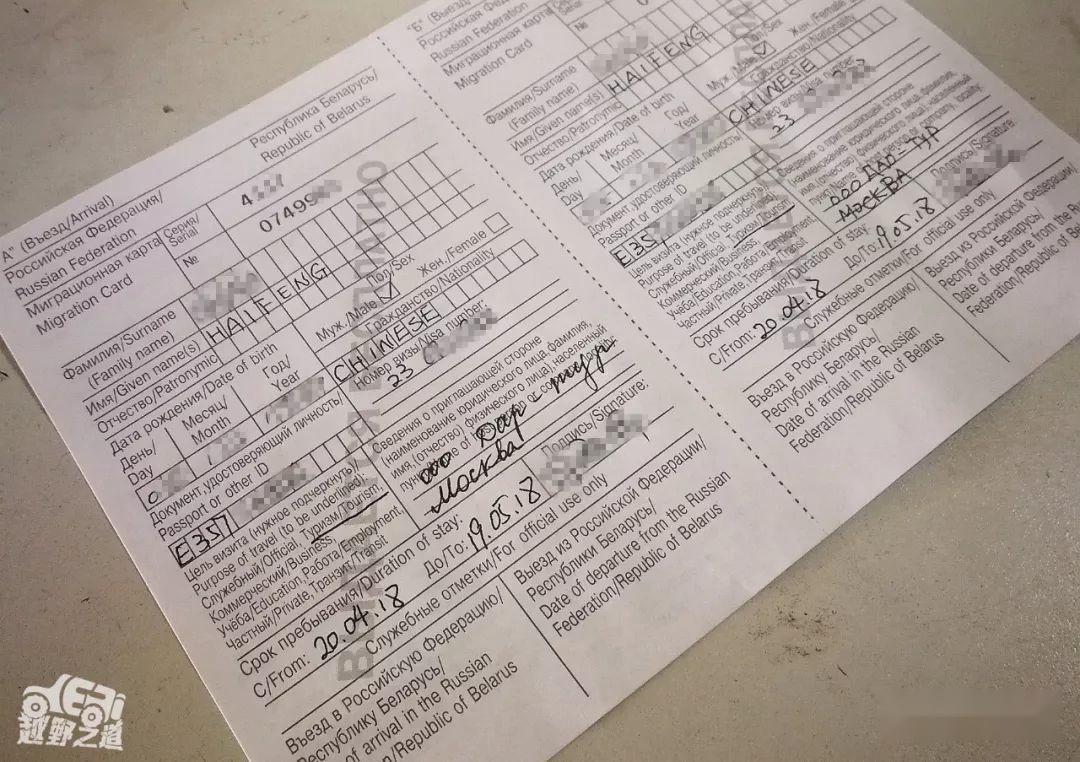 А" (Въезд/Arrival)
Республика Беларусь/
Republic of Belarus
Российская Федерация/
Russian Federation
Миграционная карта
Migration Card
Серия/
Serial
4
№
0749
Фамилия/Surname
(Family name)
Имя/Given name(s)
HAIFENG
Отчество/Patronymic
Дата рождения/Date of birth
День/
Day
Месяц/
Month
Год/
Year
Пол/Sex
Муж./Male
Жен./Female
Гражданство/Nationality
CHINESE
Документ, удостоверяющий личность/
Passport or other ID
E357
Номер визы/Visa number:
23
Цель визита (нужное подчеркнуть)/
Purpose of travel (to be underlined):
Служебный/Official, Туризм/Tourism,
Коммерческий/Business,
Учёба/Education, Работа/Employment,
Частный/Private, Транзит/Transit
Сведения о приглашающей стороне
(наименование юридического лица, фамилия,
имя, (отчество) физического лица), населенный
ооо Дар - тур
Москва
Срок пребывания/Duration of stay:
С/From: 20.04.18
До/To: 19.05.18
Подпись/Signature:
Служебные отметки/For official use only
Въезд в Российскую Федерацию/
Республику Беларусь/
of arrival in the Russian
/Republic of Belarus
Выезд из Российской Федерации/
Республики Беларусь/
Date of departure from the Russian
Federation/Republic of Belarus
"Б" (Выезд/
Российская Федерация/
Russian Federation
Миграционная карта
Migration Card
Serial
№
Фамилия/Surname
(Family name)
Имя/Given name(s)
HAIFENG
Отчество/Patronymic
Дата рождения/Date of birth
День/
Day
Месяц/
Month
Год/
Year
Муж./Male
Жен./Female
Гражданство/Nationality
CHINESE
Документ, удостоверяющий личность/
Passport or other ID
E357
23
Цель визита (нужное подчеркнуть)/
Purpose of travel (to be underlined):
Служебный/Official, Туризм/Tourism,
Коммерческий/Business,
Учёба/Education, Работа/Employment,
Частный/Private, Транзит/Transit
Сведения о приглашающей стороне
(наименование юридического лица, фамилия,
имя, (отчество) физического лица), населенный
ООО ДАР - ТУР
МОСКВА
Подпись/Signature:
Срок пребывания/Duration of stay:
С/From: 20.04.18
До/To: 19.05.18
Служебные отметки/For official use only
Въезд в Российскую Федерацию/
Республику Беларусь/
Date of arrival in the Russian
Federation/Republic of Belarus
Выезд из Российской Федерации/
Республики Беларусь/
Date of departure from the Russian
Federation/Republic of Belarus
越野之道